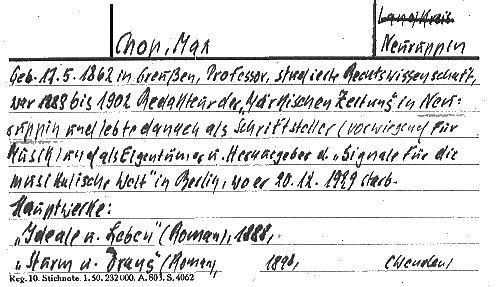 Landkreis
Chop, Max Neuruppin
Geb. 17.5. 1862 in Greußen, Professor, studierte Rechtswissenschaft,
war 1888 bis 1902 Redakteur der „Märkischen Zeitung" in Neu-
ruppin und lebte danach als Schriftsteller (vorwiegend für
Musik) und als Eigentümer u. Herausgeber d. „Signale für die
musikalische Welt" in Berlin, wo er 20.12. 1929 starb.
Hauptwerke:
„Ideale u. Leben" (Roman), 1888,
„Sturm u. Drang" (Roman, 1890, (wenden)
Reg. 10. Stichnote. 1. 50. 232 000. A. 803. S. 4062